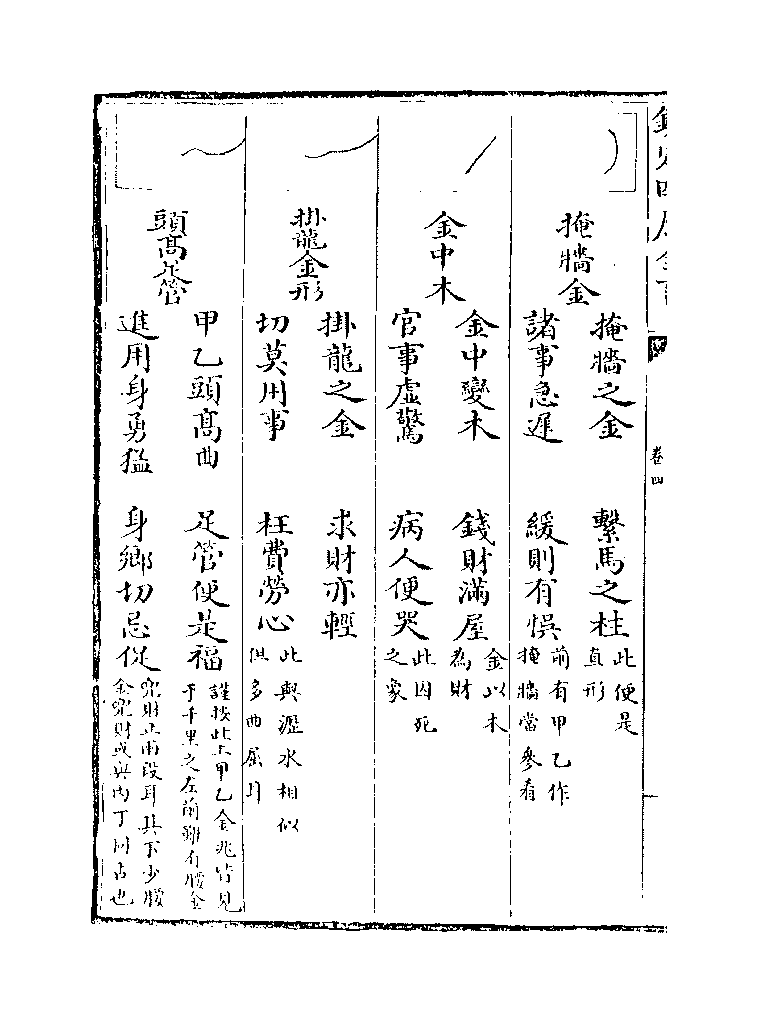 欽定四庫全書
卷四
掩牆金
掩牆之金 繫馬之柱此便是直形
諸事急遲 緩則有悞前有甲乙作掩牆當參看
金中木
金中變木 錢財滿屋金以木為財
官事虛驚 病人便哭此因死之象
掛龍金形
掛龍之金 求財亦輕
切莫用事 枉費勞心此與瀝水相似但多曲屈耳
頭髙足管
甲乙頭髙曲 足管便是福謹按此上甲乙金兆皆見于千里之左前雖有腰金
進用身勇猛 身鄉切忌促兜財止兩段耳其下少腰金兜財或與丙丁同占也